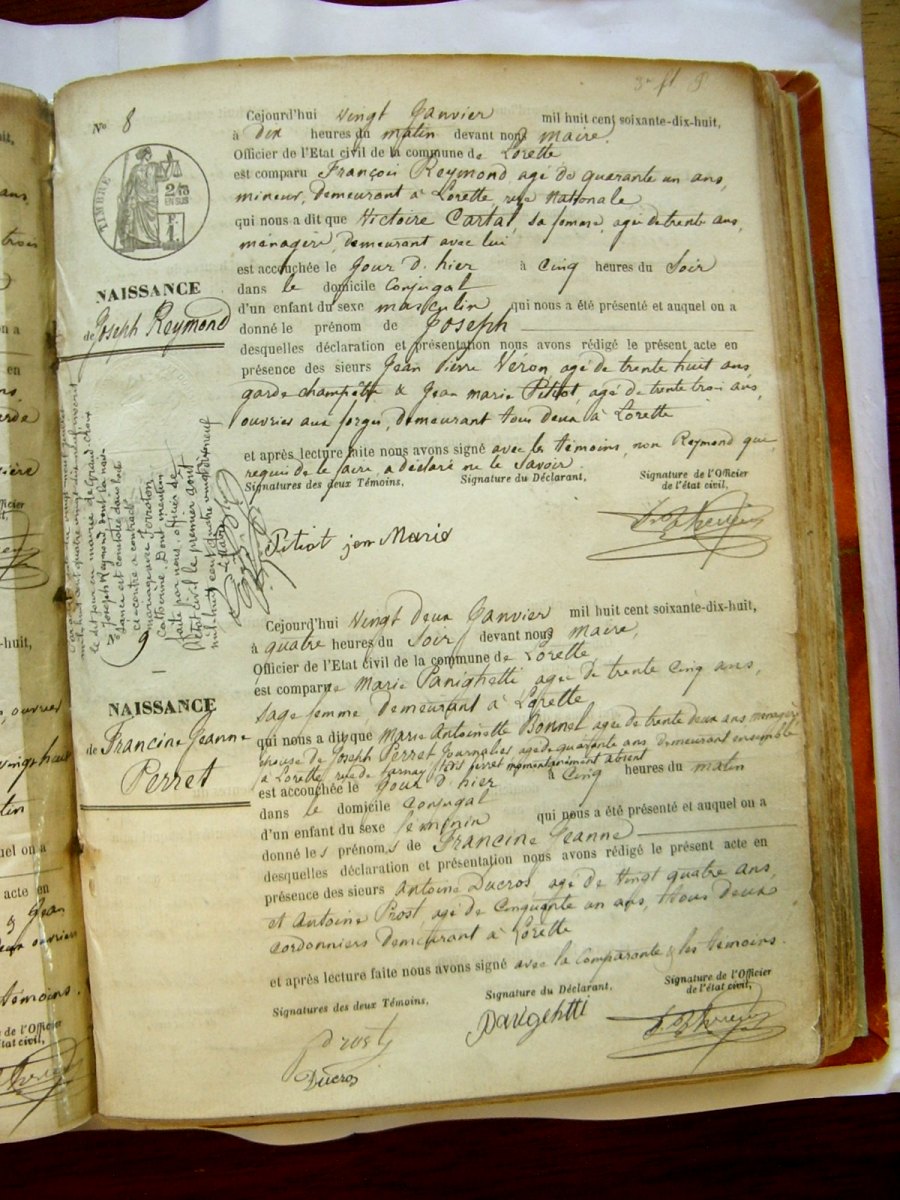 3
N° 8
TIMBRE
EN SUS
NAISSANCE
de Joseph Reymond
Cejourd'hui vingt Janvier mil huit cent soixante-dix-huit,
à dix heures du matin devant nous maire
Officier de l'Etat civil de la commune de Lorette
est comparu François Reymond agé de quarante un ans,
mineur, demeurant à Lorette, rue Nationale
qui nous a dit que Victoire Cartal, sa femme, agée de trente ans,
menagère, demeurant avec lui
est accouchée le Jour d'hier à Cinq heures du Soir
dans le domicile Conjugal
d'un enfant du sexe masculin qui nous a été présenté et auquel on a
donné le prénom de Joseph
desquelles déclaration et présentation nous avons rédigé le présent acte en
présence des sieurs Jean Pierre Véron agé de trente huit ans,
garde champêtre & Jean marie Pitiot, agé de trente trois ans,
ouvrier aux forges, demeurant tous deux à Lorette
et après lecture faite nous avons signé avec les témoins, non Reymond qui
requis de le faire, a déclaré ne le Savoir.
Signatures des deux Témoins,
Signature du Déclarant,
Signature de l'Officier
de l'état civil,
Pitiot jen Marie
le dit jour en mairie de Grand-Croix
Joseph Reymond dont la nais-
sance est constatée dans l'acte
ci-contre a contracté
mariage avec
Catherine. Dont mention
faite par nous, officier de
l'état civil le premier août
mil huit cent quatre vingt dix neuf
9
NAISSANCE
de Francine Jeanne
Perret
Cejourd'hui vingt deux Janvier mil huit cent soixante-dix-huit,
à quatre heures du Soir devant nous maire,
Officier de l'Etat civil de la commune de Lorette
est comparue Marie Panighetti agée de trente cinq ans,
Sage femme, demeurant à Lorette
qui nous a dit que Marie Antoinette Bonnel agée de trente deux ans menagère
épouse de Joseph Perret Journalier agé de quarante ans demeurant ensemble
à Lorette rue de perret momentanément absent
est accouchée le Jour d'hier à Cinq heures du matin
dans le domicile Conjugal
d'un enfant du sexe féminin qui nous a été présenté et auquel on a
donné les prénoms de Francine Jeanne
desquelles déclaration et présentation nous avons rédigé le présent acte en
présence des sieurs Antoine Ducros, agé de vingt quatre ans,
et Antoine Prost, agé de Cinquante un ans, tous deux
cordonniers demeurant à Lorette
et après lecture faite nous avons signé avec la Comparante & les témoins.
Signatures des deux Témoins,
Signature du Déclarant,
Signature de l'Officier
de l'état civil,
Prost
Ducros
Panigehtti